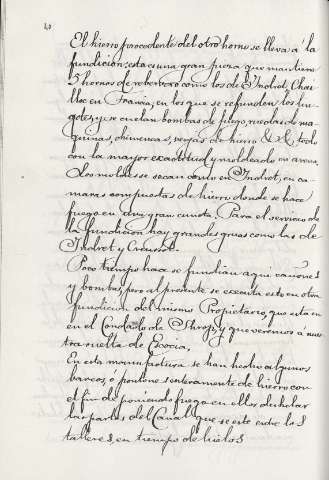 40
El hierro procedente del otro horno se lleva á la
fundicion; esta es una gran pieza que mantiene
5 hornos de reberbero como los de Indret, Chai-
llot en Francia, en los que se refunden los lin-
gotes, y se cuelan bombas de fuego, ruedas de ma-
quinas, chimeneas, verjas de hierro &. &. todo
con la mayor exactitud y moldeado en arena.
Los moldes se secan como en Indret, en ca-
maras compuestas de hierro donde se hace
fuego en una gran cuneta. Para el servicio de
la fundicion hay grandes gruas como las de
Indret y Creussot.
Poco tiempo hace se fundian aqui cañones
y bombas, pero al presente se executa esto en otra
fundicion del mismo Propietario, que está en
en el Condado de Shrop, y que veremos á nues-
tra vuelta de Escocia.
En esta manufactura se han hecho algunos
barcos, ó pontones enteramente de hierro con
el fin de poniendo fuego en ellos deshelar
las partes del Canal que se este entre los
talleres, en tiempo de hielos